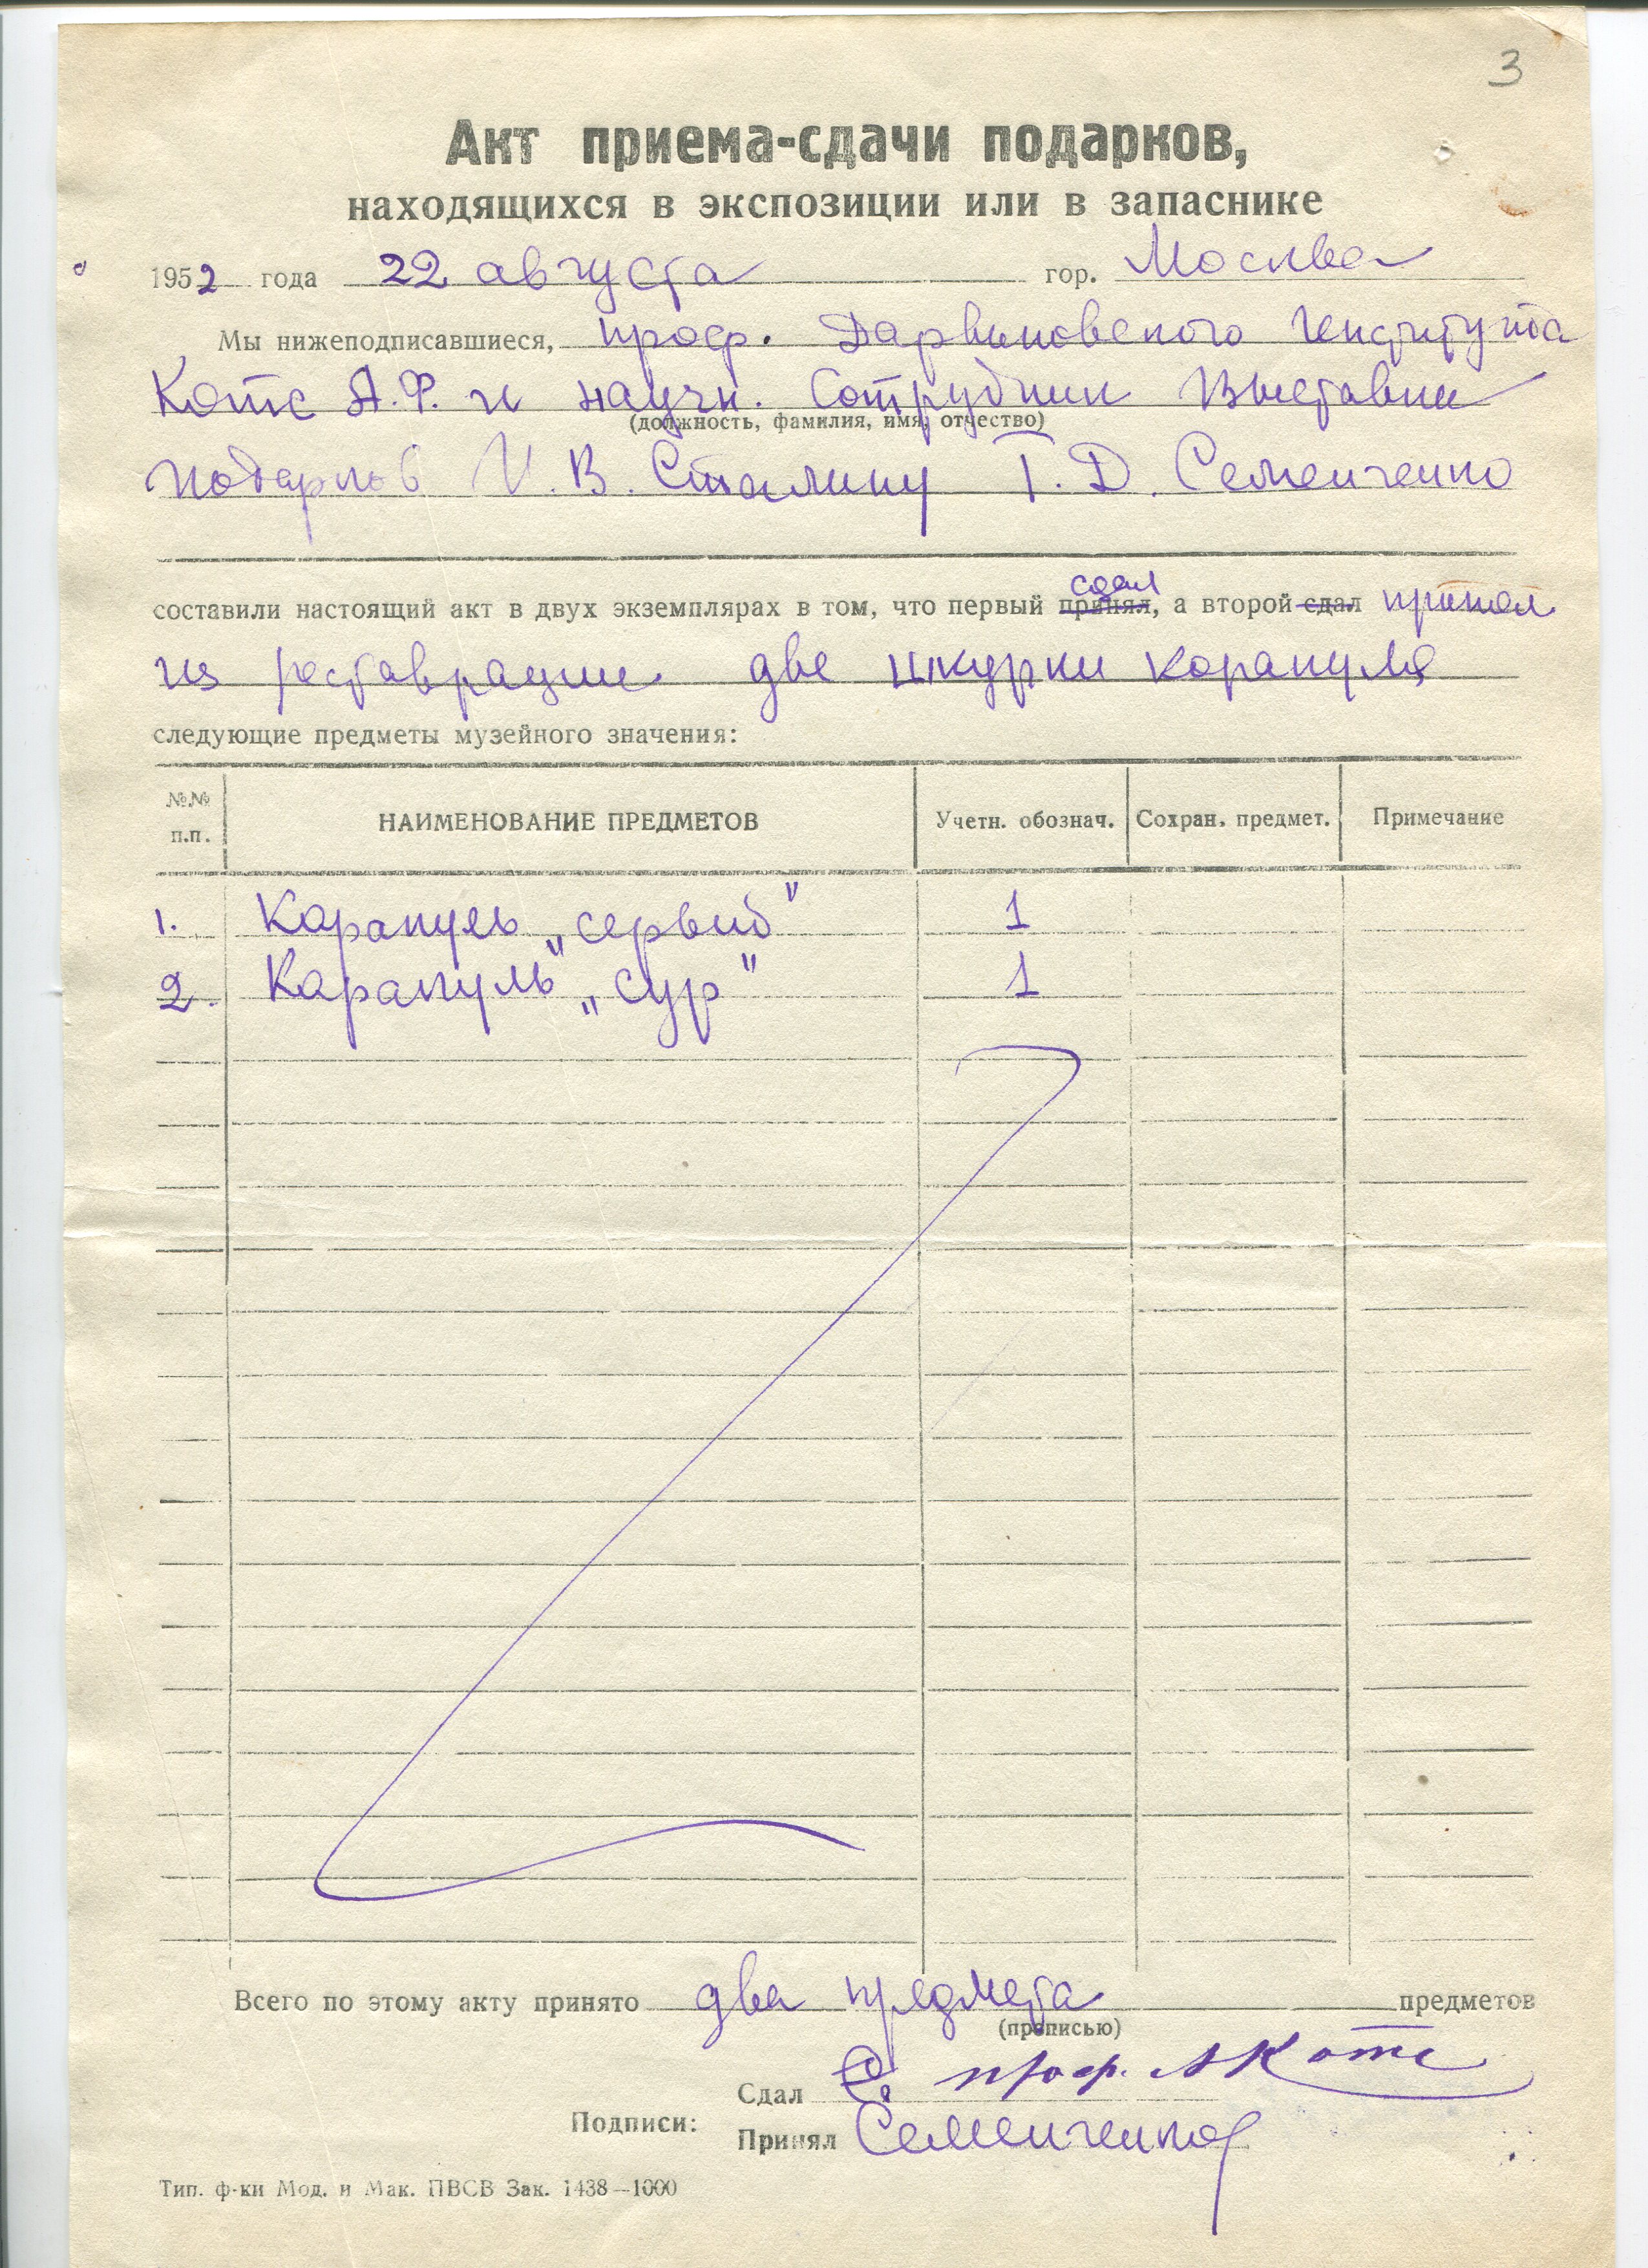 3
Акт приема-сдачи подарков,
находящихся в экспозиции или в запаснике
1952 года 22 августа гор. Москва
Мы нижеподписавшиеся, проф. Дарвиновского Института
Котс А.Ф. и научн. сотрудник Выставки
(должность, фамилия, имя, отчество)
подарков И.В. Сталину Т.Д. Семенченко
сдал
составили настоящий акт в двух экземплярах в том, что первый принял, а второй сдал принял
из реставрации две шкурки каракуля
следующие предметы музейного значения:
№№ п.п. НАИМЕНОВАНИЕ ПРЕДМЕТОВ Учетн. обознач. Сохран. предмет. Примечание
1. Каракуль „серый" 1
2. Каракуль „сур" 1
Всего по этому акту принято два предмета предметов
(прописью)
Сдал проф. А Котс
Подписи:
Принял Семенченко
Тип. ф-ки Мод. и Мак. ПВСВ Зак. 1438—1000